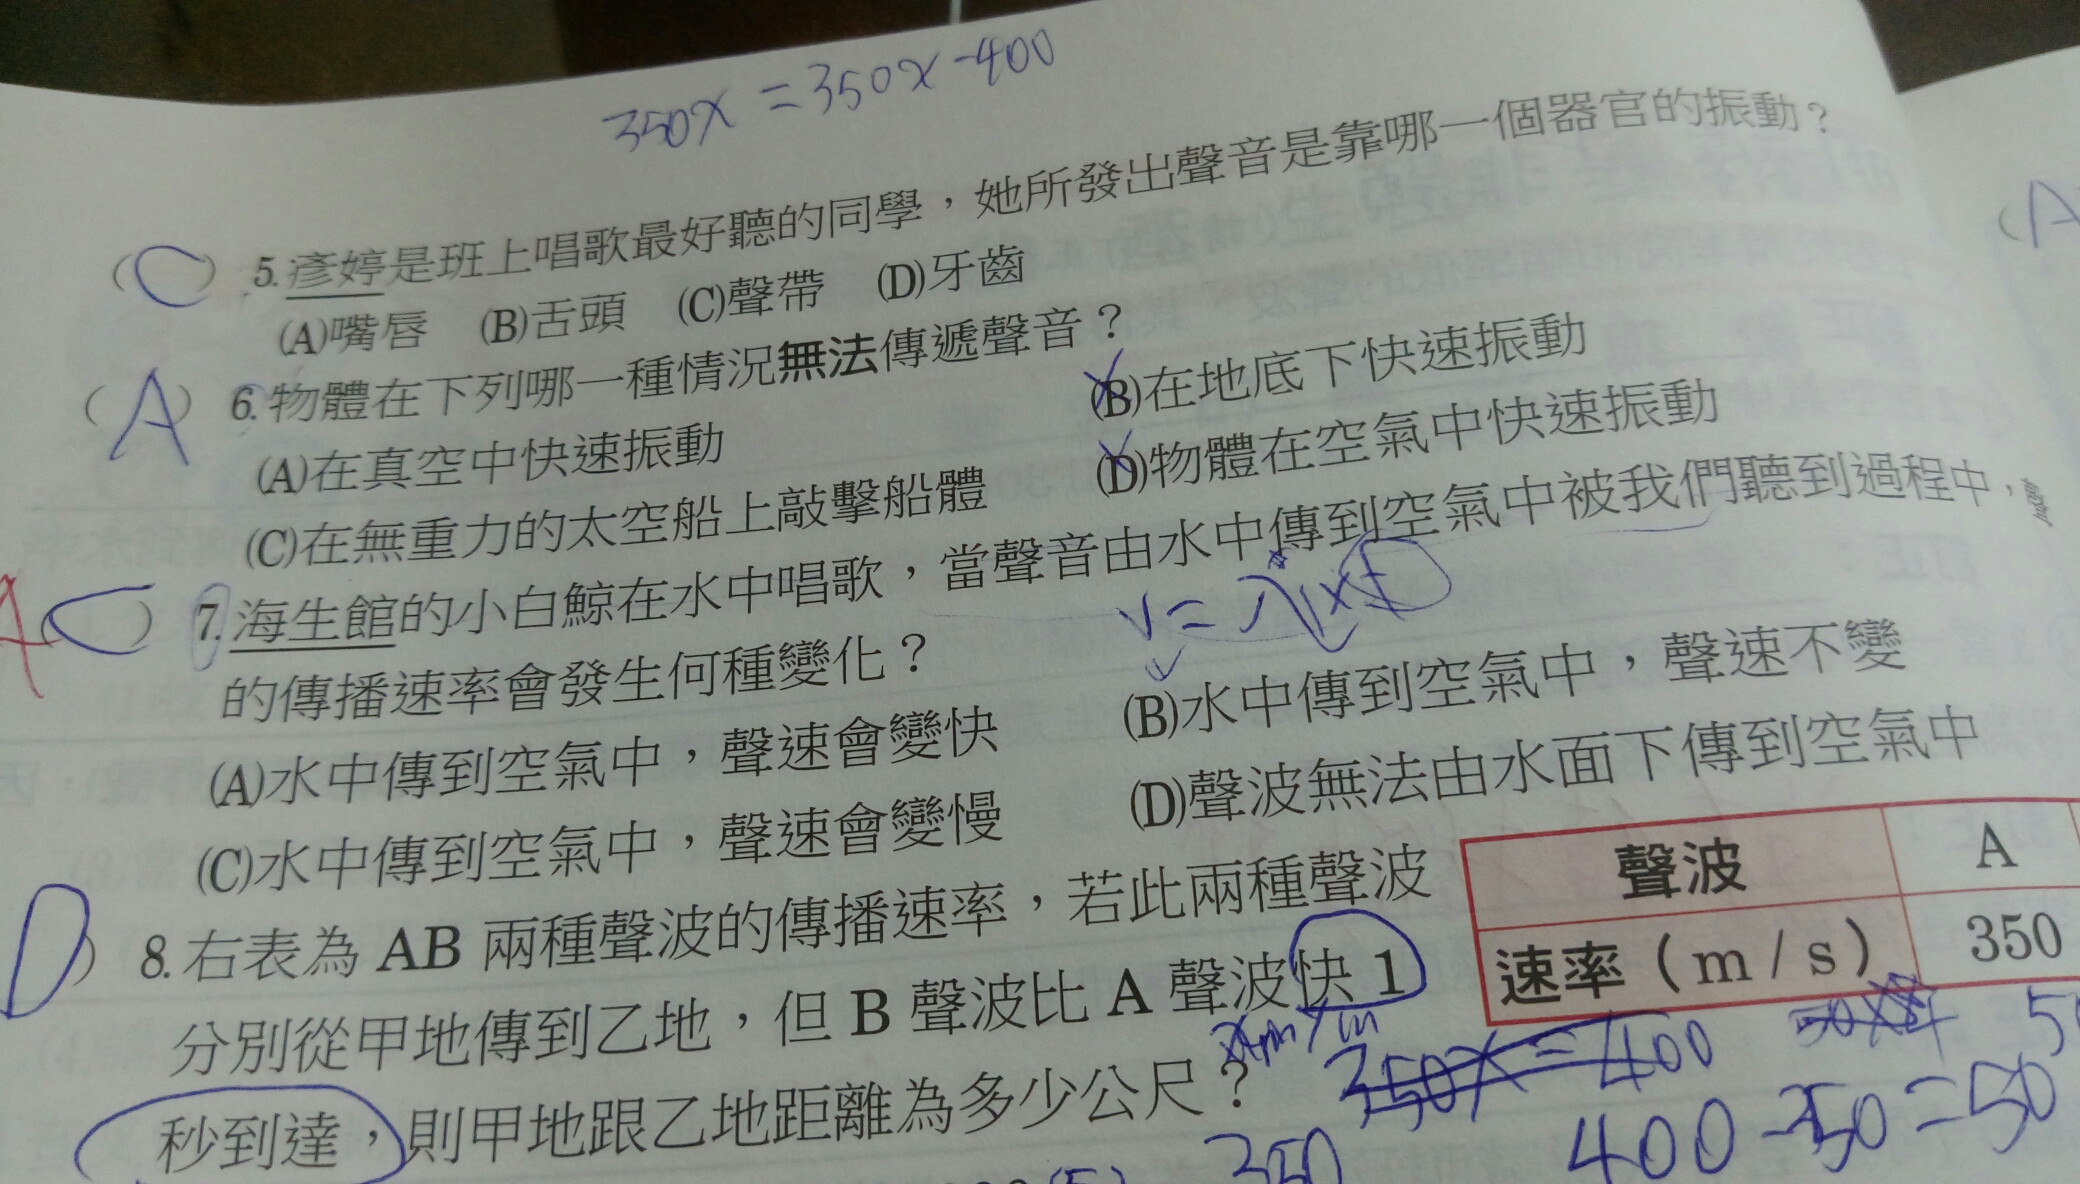 350x = 350x - 400
(C) 5.彥婷是班上唱歌最好聽的同學，她所發出聲音是靠哪一個器官的振動？
(A)嘴唇 (B)舌頭 (C)聲帶 (D)牙齒
(A) 6.物體在下列哪一種情況無法傳遞聲音？
(A)在真空中快速振動 (B)在地底下快速振動
(C)在無重力的太空船上敲擊船體 (D)物體在空氣中快速振動
7.海生館的小白鯨在水中唱歌，當聲音由水中傳到空氣中被我們聽到過程中，聲
的傳播速率會發生何種變化？
V = λ × f
(A)水中傳到空氣中，聲速會變快 (B)水中傳到空氣中，聲速不變
(C)水中傳到空氣中，聲速會變慢 (D)聲波無法由水面下傳到空氣中
(D) 8.右表為 AB 兩種聲波的傳播速率，若此兩種聲波
分別從甲地傳到乙地，但 B 聲波比 A 聲波快 1
秒到達，則甲地跟乙地距離為多少公尺？
聲波 A
速率（m/s） 350
350x = 400
400 - 350 = 50
350
(A
訂正：